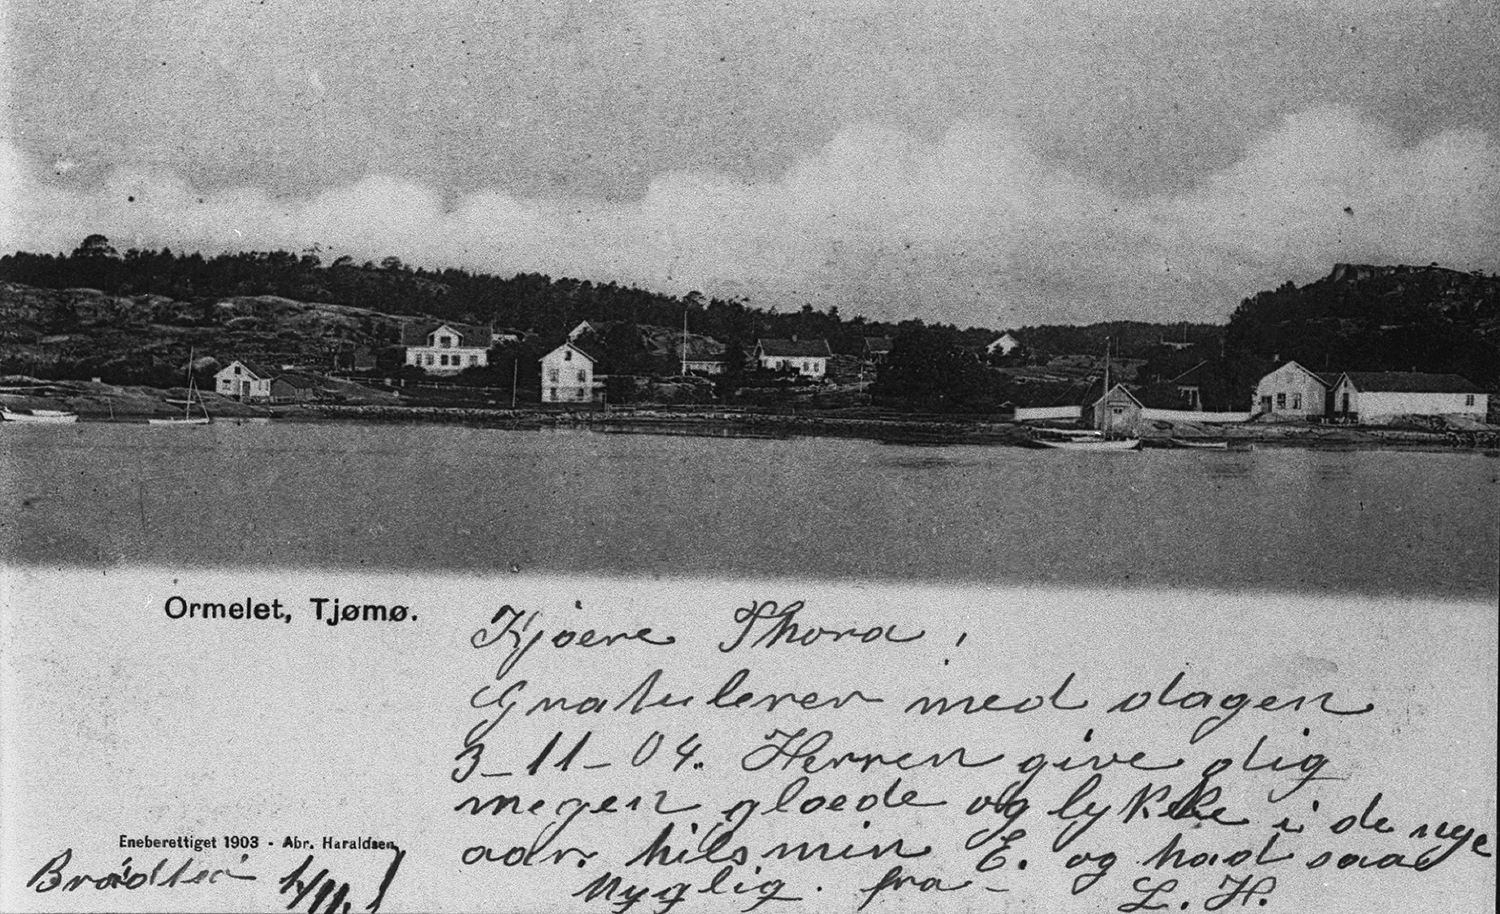 Ormelet, Tjømø.
Kjære Thora,
Gratulerer med dagen
3-11-04. Herren give dig
megen glæde og lykke i de nye
aar. hils min E. og had saa
hyglig. fra - L. H.
Eneberettiget 1903 - Abr. Haraldsen
1/11.